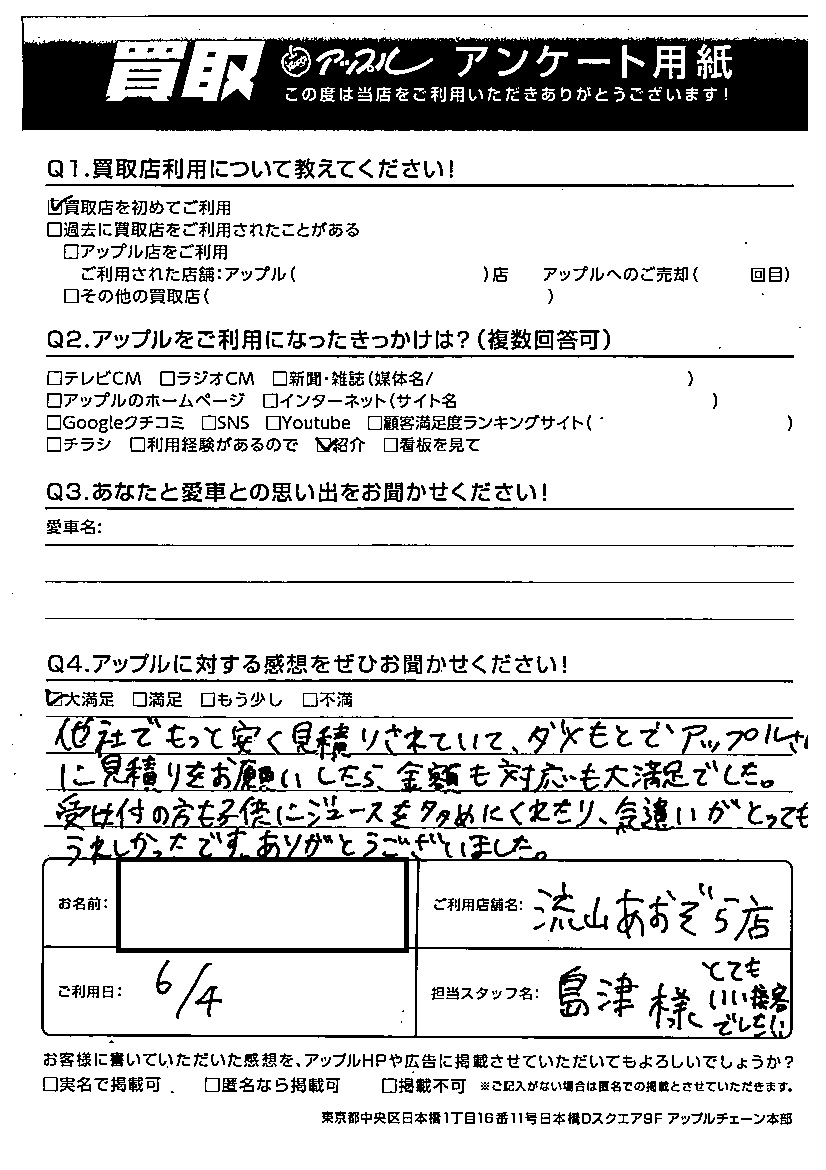 買取 アップル アンケート用紙
この度は当店をご利用いただきありがとうございます!
Q1.買取店利用について教えてください!
☑買取店を初めてご利用
□過去に買取店をご利用されたことがある
□アップル店をご利用
ご利用された店舗:アップル( )店 アップルへのご売却( 回目)
□その他の買取店( )
Q2.アップルをご利用になったきっかけは?(複数回答可)
□テレビCM □ラジオCM □新聞・雑誌(媒体名/ )
□アップルのホームページ □インターネット(サイト名 )
□Googleクチコミ □SNS □Youtube □顧客満足度ランキングサイト( )
□チラシ □利用経験があるので ☑紹介 □看板を見て
Q3.あなたと愛車との思い出をお聞かせください!
愛車名:
Q4.アップルに対する感想をぜひお聞かせください!
☑大満足 □満足 □もう少し □不満
他社でもっと安く見積りされていて、ダメもとでアップルさん
に見積りをお願いしたら、金額も対応も大満足でした。
受け付の方も子供にジュースを多めにくれたり、気遣いがとっても
うれしかったです。ありがとうございました。
お名前:
ご利用店舗名: 流山あおぞら店
ご利用日: 6/4
担当スタッフ名: 島津様 とても
いい接客
でした!!
お客様に書いていただいた感想を、アップルHPや広告に掲載させていただいてもよろしいでしょうか?
□実名で掲載可 □匿名なら掲載可 □掲載不可 ※ご記入がない場合は匿名での掲載とさせていただきます。
東京都中央区日本橋1丁目16番11号日本橋Dスクエア9F アップルチェーン本部